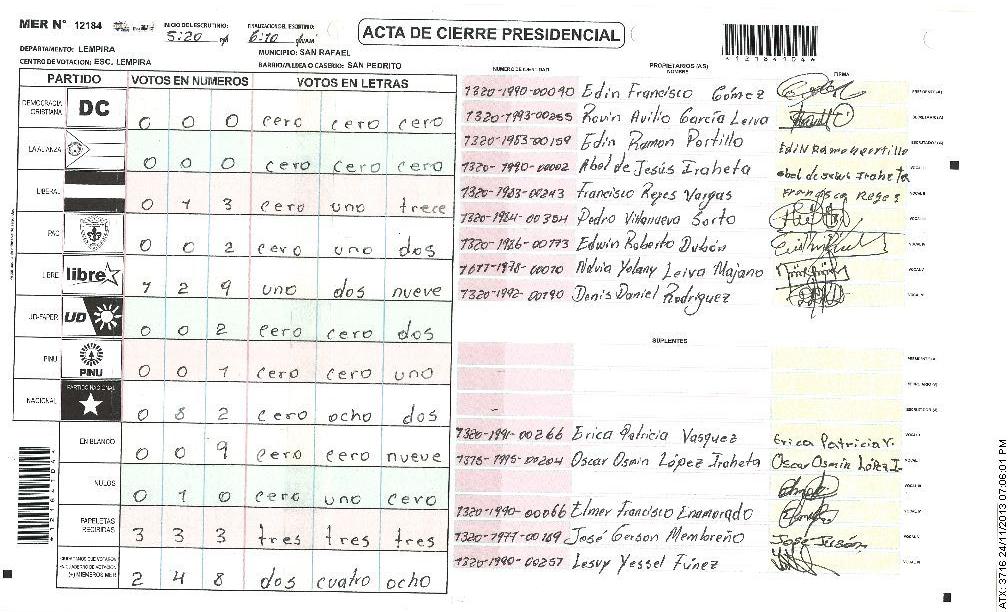 MER N° 12184
INICIO DEL ESCRUTINIO:
5:20 PM
FINALIZACION DEL ESCRUTINIO:
6:10 P/AM
ACTA DE CIERRE PRESIDENCIAL
*12184104*
DEPARTAMENTO: LEMPIRA
MUNICIPIO: SAN RAFAEL
CENTRO DE VOTACION: ESC. LEMPIRA
BARRIO/ALDEA O CASERIO: SAN PEDRITO
PARTIDO VOTOS EN NUMEROS VOTOS EN LETRAS
DEMOCRACIA CRISTIANA DC 0 0 0 cero cero cero
LA ALIANZA 0 0 0 cero cero cero
LIBERAL 0 1 3 cero uno trece
PAC 0 0 2 cero uno dos
LIBRE libre 1 2 9 uno dos nueve
UD-FAPER UD 0 0 2 cero cero dos
PINU PINU 0 0 1 cero cero uno
NACIONAL PARTIDO NACIONAL 0 8 2 cero ocho dos
EN BLANCO 0 0 9 cero cero nueve
NULOS 0 1 0 cero uno cero
PAPELETAS RECIBIDAS 3 3 3 tres tres tres
CIUDADANOS QUE VOTARON
(+) MIEMBROS MER 2 4 8 dos cuatro ocho
NUMERO DE IDENTIDAD PROPIETARIOS (AS) NOMBRE FIRMA
1320-1990-00090 Edin Francisco Gómez
1320-1993-00265 Rovin Avilio García Leiva
1320-1983-00159 Edin Ramon Portillo Edin Ramon portillo
1320-1990-00002 Abel de Jesús Iraheta abel de Jesus Iraheta
1320-1983-00243 Francisco Reyes Vargas Francisco Reyes
1320-1984-00304 Pedro Villanueva Sorto
1320-1986-00173 Edwin Roberto Dubón
Yolany Leiva Majano
1320-1992-00190 Denis Daniel Rodríguez
SUPLENTES
1320-1991-00266 Erica Patricia Vasquez Erica Patricia V.
Oscar Osmin López Iraheta Oscar Osmin López I.
1320-1990-00066 Elmer Francisco Enamorado
1320-1977-00169 José Gerson Membreño
1320-1990-00257 Lesvy Yessel Fúnez
ATX: 3716 24/11/2013 07:06:01 PM